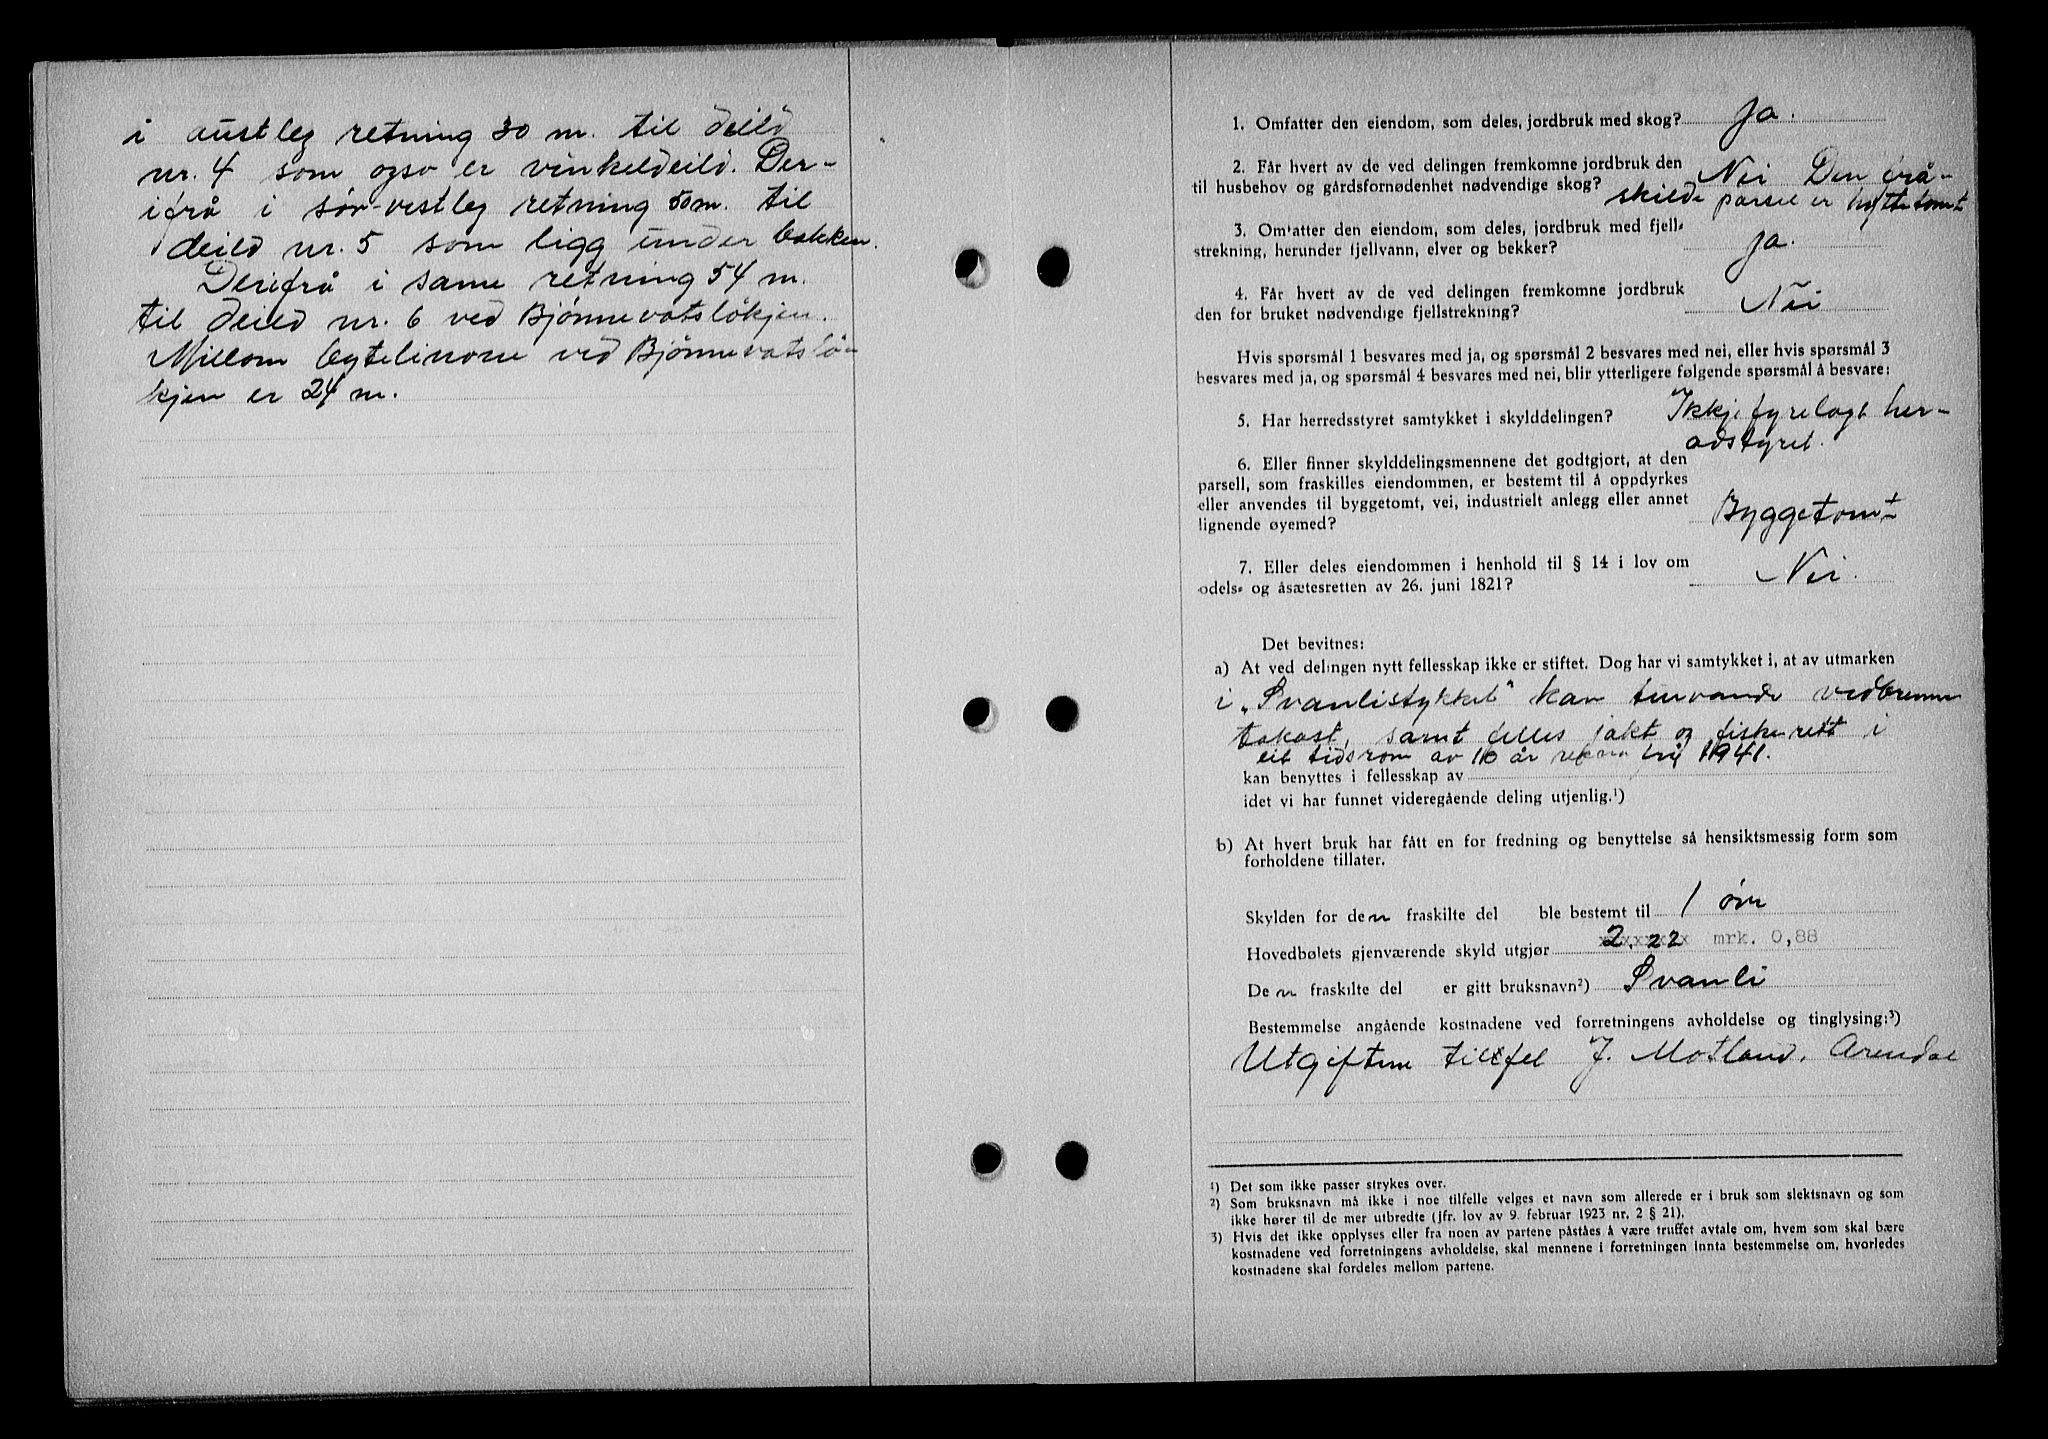 i austleg retning 30 m. til deild
nr. 4 som ogso er vinkeldeild. Der-
ifrå i sør-vestleg retning 50 m. til
deild nr. 5 som ligg under bakken.
Derifrå i same retning 54 m.
til deild nr. 6 ved Bjønnevatsløkjen.
Millom bytelinone vid Bjønnevatslø-
kjen er 24 m.
1. Omfatter den eiendom, som deles, jordbruk med skog? Ja.
2. Får hvert av de ved delingen fremkomne jordbruk den
til husbehov og gårdsfornødenhet nødvendige skog? Nei Den frå-
skilde parsel er hyttetomt
3. Omfatter den eiendom, som deles, jordbruk med fjell-
strekning, herunder fjellvann, elver og bekker? Ja.
4. Får hvert av de ved delingen fremkomne jordbruk
den for bruket nødvendige fjellstrekning? Nei
Hvis spørsmål 1 besvares med ja, og spørsmål 2 besvares med nei, eller hvis spørsmål 3
besvares med ja, og spørsmål 4 besvares med nei, blir ytterligere følgende spørsmål å besvare:
5. Har herredsstyret samtykket i skylddelingen? Ikkje fyrelagt her-
adstyret.
6. Eller finner skylddelingsmennene det godtgjort, at den
parsell, som fraskilles eiendommen, er bestemt til å oppdyrkes
eller anvendes til byggetomt, vei, industrielt anlegg eller annet
lignende øyemed? Byggetomt
7. Eller deles eiendommen i henhold til § 14 i lov om
odels- og åsætesretten av 26. juni 1821? Nei.
Det bevitnes:
a) At ved delingen nytt fellesskap ikke er stiftet. Dog har vi samtykket i, at av utmarken
i „Svanlistykket“ kan turvande vedbrenne
takast, samt felles jakt og fiskerett i
eit tidsrom av 10 år rekna frå 1941.
kan benyttes i fellesskap av
idet vi har funnet videregående deling utjenlig.¹)
b) At hvert bruk har fått en for fredning og benyttelse så hensiktsmessig form som
forholdene tillater.
Skylden for den fraskilte del ble bestemt til 1 øre
Hovedbølets gjenværende skyld utgjør 2.22 mrk. 0,88
Den fraskilte del er gitt bruksnavn²) Svanli
Bestemmelse angående kostnadene ved forretningens avholdelse og tinglysing:³)
Utgiftene tilfel J. Motland, Arendal
¹) Det som ikke passer strykes over.
²) Som bruksnavn må ikke i noe tilfelle velges et navn som allerede er i bruk som slektsnavn og som
ikke hører til de mer utbredte (jfr. lov av 9. februar 1923 nr. 2 § 21).
³) Hvis det ikke opplyses eller fra noen av partene påståes å være truffet avtale om, hvem som skal bære
kostnadene ved forretningens avholdelse, skal mennene i forretningen innta bestemmelse om, hvorledes
kostnadene skal fordeles mellom partene.